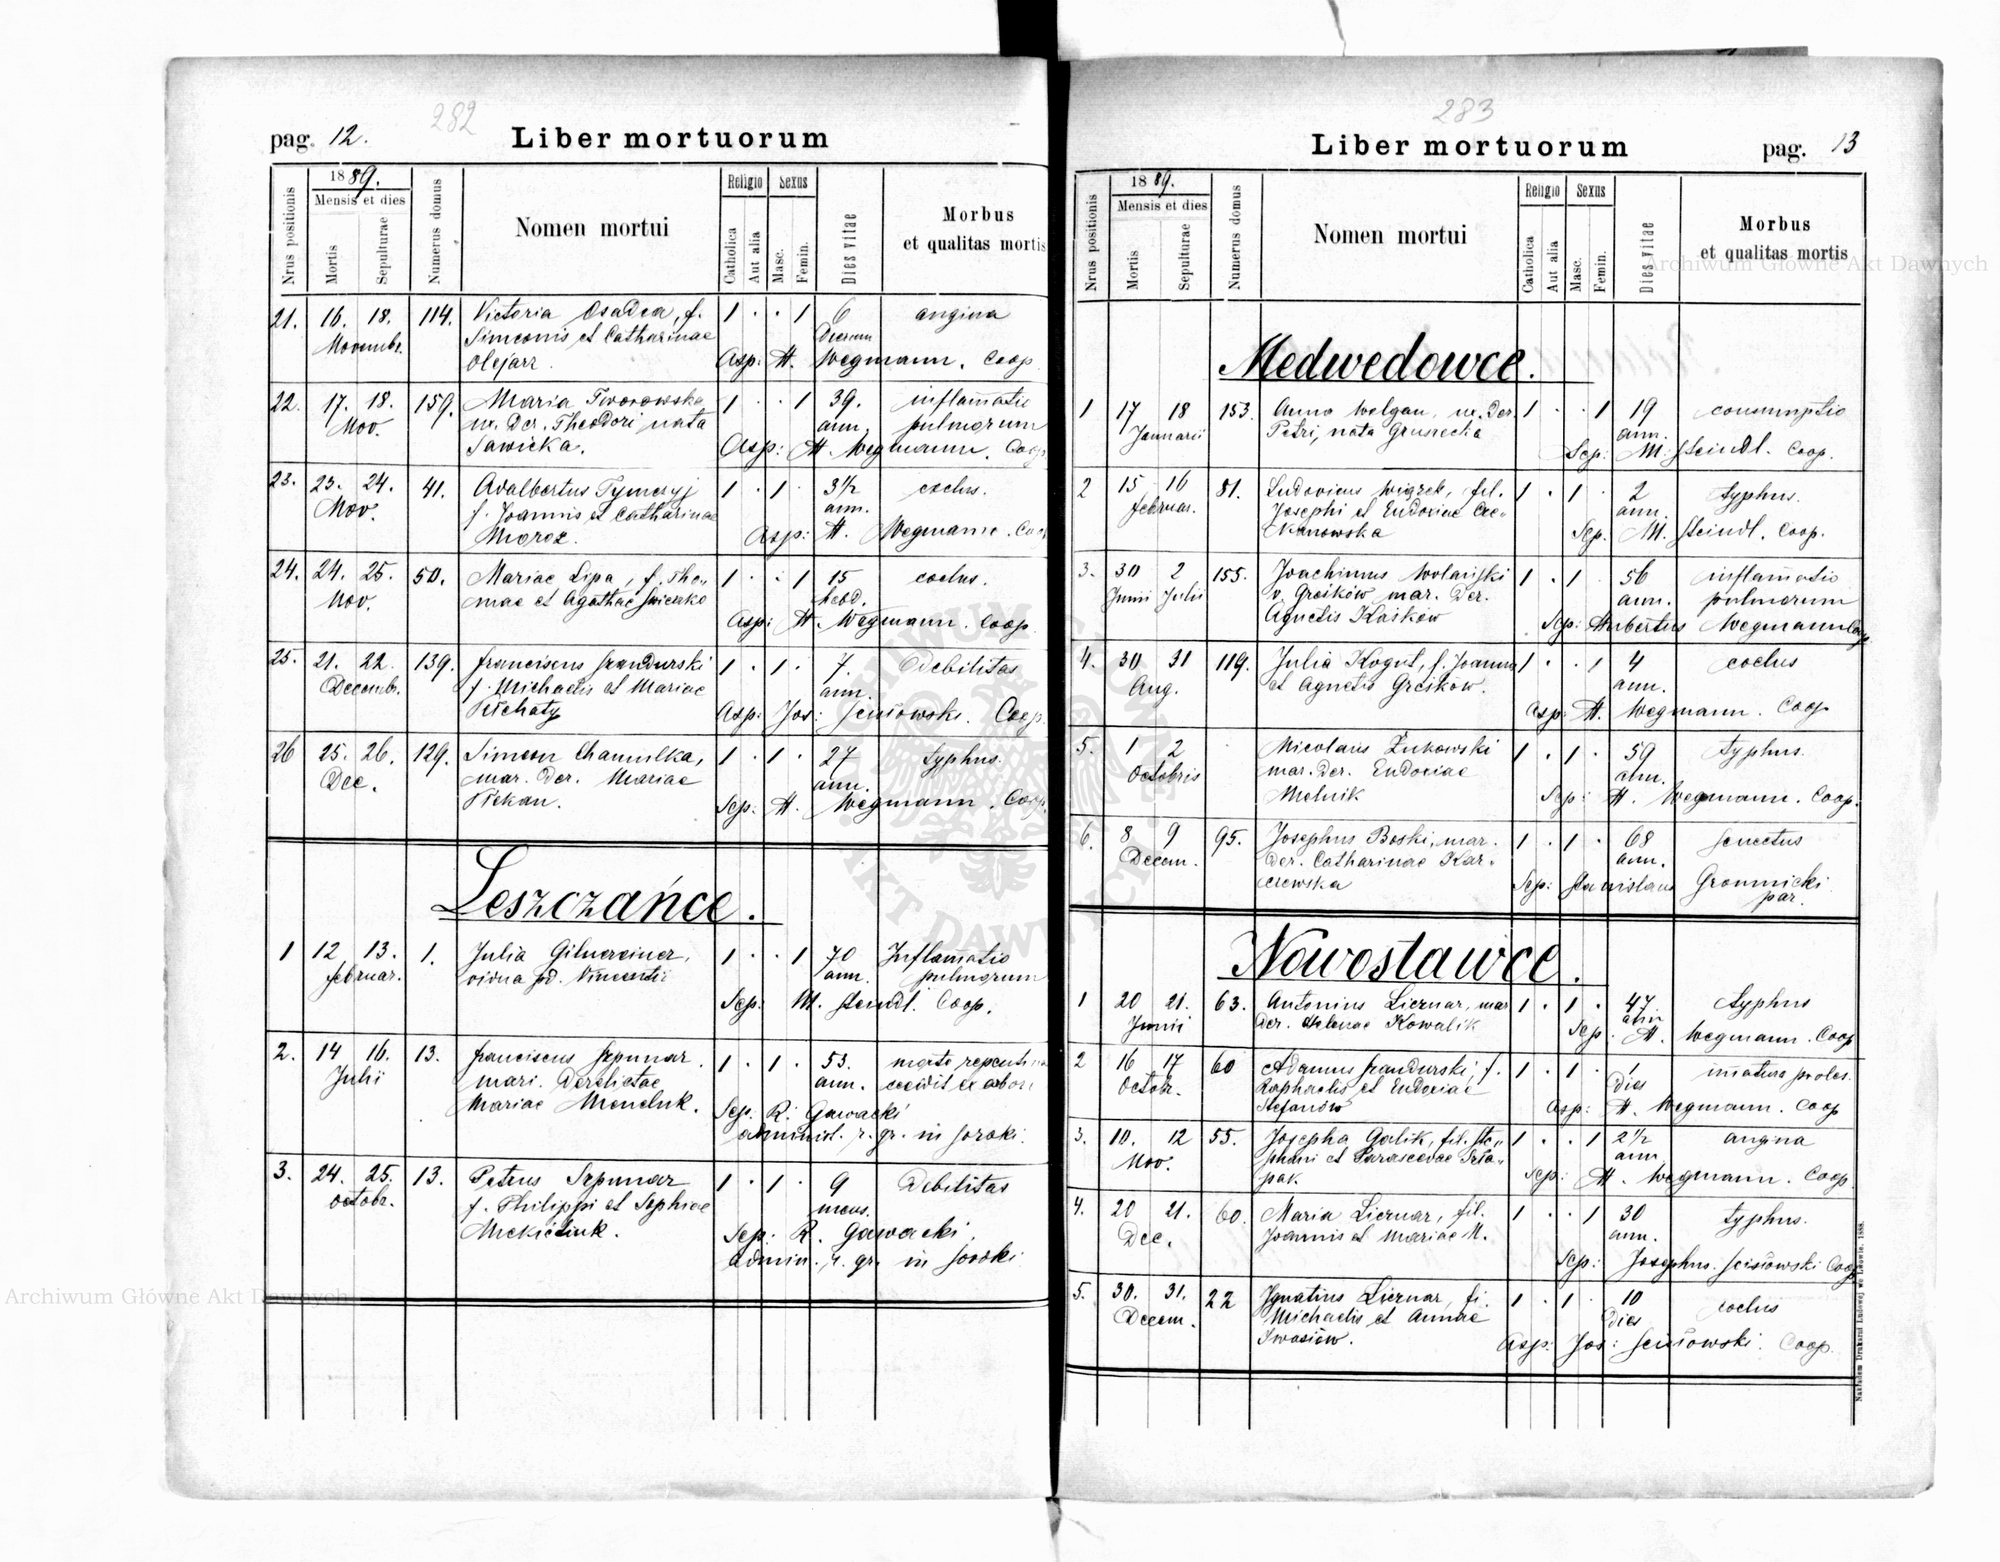 282
pag. 12.
Liber mortuorum
Nrus positionis
1889.
Mensis et dies
Mortis
Sepulturae
Numerus domus
Nomen mortui
Religio
Catholica
Aut alia
Sexus
Masc.
Femin.
Dies vitae
Morbus
et qualitas mortis
21. 16. 18. 114. Victoria Osadca, f. 1 · · 1 6 angina
Novembr. Simeonis et Catharinae Dierum
Olejarz. Asp: H. Wegmann. Coop
22. 17. 18. 159. Maria Tworowska 1 · · 1 39. inflam̄atio
Nov. ux. Der. Theodori nata ann. pulmorum
Sawicka. Asp: H. Wegmann. Coop
23. 23. 24. 41. Adalbertus Tymczyj 1 · 1 · 3½ coelus.
Nov. f. Joannis et Catharinae ann.
Mroz. Asp: H. Wegmann. Coop
24. 24. 25. 50. Mariae Lipa, f. Tho„ 1 · · 1 15 coelus.
Nov. mae et Agathae hebd.
Asp: H. Wegmann. Coop
25. 21. 22. 139. Franciscus Frandurski 1 · 1 · 7. Debilitas
Decemb. f. Michaelis et Mariae ann.
Asp: Jos: Scisłowski. Coop.
26 25. 26. 129. Simeon Chamulka, 1 · 1 · 27 typhus.
Dec. mar. Der. Mariae ann.
Sep: H. Wegmann. Coop.
Leszczańce.
1 12 13. 1. Julia 1 · · 1 70 Inflam̄atio
februar. vidua pd. Vincentii ann. pulmorum
Sep: M. Steindl. Coop.
2. 14 16. 13. Franciscus Szpunar. 1 · 1 · 53. morte repentina
Julii mari. Derelictae ann. cecidit ex arbore
Mariae Sep. R. Gawacki
administ. r. gr. in Soroki.
3. 24. 25. 13. Petrus Szpunar 1 · 1 · 9 Debilitas
Octobr. f. Philippi et Sophiae mens.
Sep: R. Gawacki
admin. r. gr. in Soroki
283
Liber mortuorum
pag. 13
Nrus positionis
1889.
Mensis et dies
Mortis
Sepulturae
Numerus domus
Nomen mortui
Religio
Catholica
Aut alia
Sexus
Masc.
Femin.
Dies vitae
Morbus
et qualitas mortis
Medwedowce.
1 17 18 153. Anna Welgan, ux. Der. 1 · · 1 19 consumptio
Januarii Petri, nata Gruszecka ann.
Sep: M. Steindl. Coop.
2 15 16 81. Ludovicus Wigzek, fil. 1 · 1 · 2 typhus.
februar. Josephi et Eudoxiae Cze„ ann.
kanowska Sep. M. Steindl. Coop.
3. 30 2 155. Joachimus Wolański 1 · 1 · 56 inflam̄atio
Junii Julii v. Greśków mar. Der. ann. pulmorum
Agnetis Kaśków Sep: Hubertus Wegmann Coop.
4. 30 31 119. Julia Kogut, f. Joannis 1 · · 1 4 coelus
Aug. et Agnetis Greśków. ann.
Asp: H. Wegmann. Coop
5. 1 2 Nicolaus Żukowski 1 · 1 · 59 typhus.
Octobris mar. Der. Eudoxiae ann.
Melnik Sep: H. Wegmann. Coop.
6. 8 9 95. Josephus Boski, mar. 1 · 1 · 68 senectus
Decem. Der. Catharinae Kar„ ann.
czewska Sep: Stanislaus Gromnicki
par.
Nowostawce.
1 20 21. 63. Antonius Licznar, mar 1 · 1 · 47. typhus
Junii Der. Helenae Kowalik ann
Sep. H. Wegmann. Coop
2 16 17 60 Adamus Frandurski, f. 1 · 1 · 1 im̄atura proles.
Octobr. Raphaelis et Eudoxiae dies
Stefanów Asp: H. Wegmann. Coop
3. 10. 12 55. Josepha Galik, fil. Ste„ 1 · · 1 2½ angina
Nov. phani et Parascevae Szla„ ann.
pak Sep: H. Wegmann. Coop.
4. 20 21. 60. Maria Licznar, fil. 1 · · 1 30 typhus.
Dec. Joannis et Mariae M. ann.
Sep: Josephus Scisłowski Coop
5. 30. 31. 22 Ignatius Licznar, fi. 1 · 1 · 10 coelus
Decem. Michaelis et Annae dies
Iwasiów. Asp: Jos: Scisłowski. Coop.
Nakładem Drukarni Ludowej we Lwowie. 1888.
Archiwum Główne Akt Dawnych
Archiwum Główne Akt Dawnych
ARCHIWUM GŁÓWNE AKT DAWNYCH